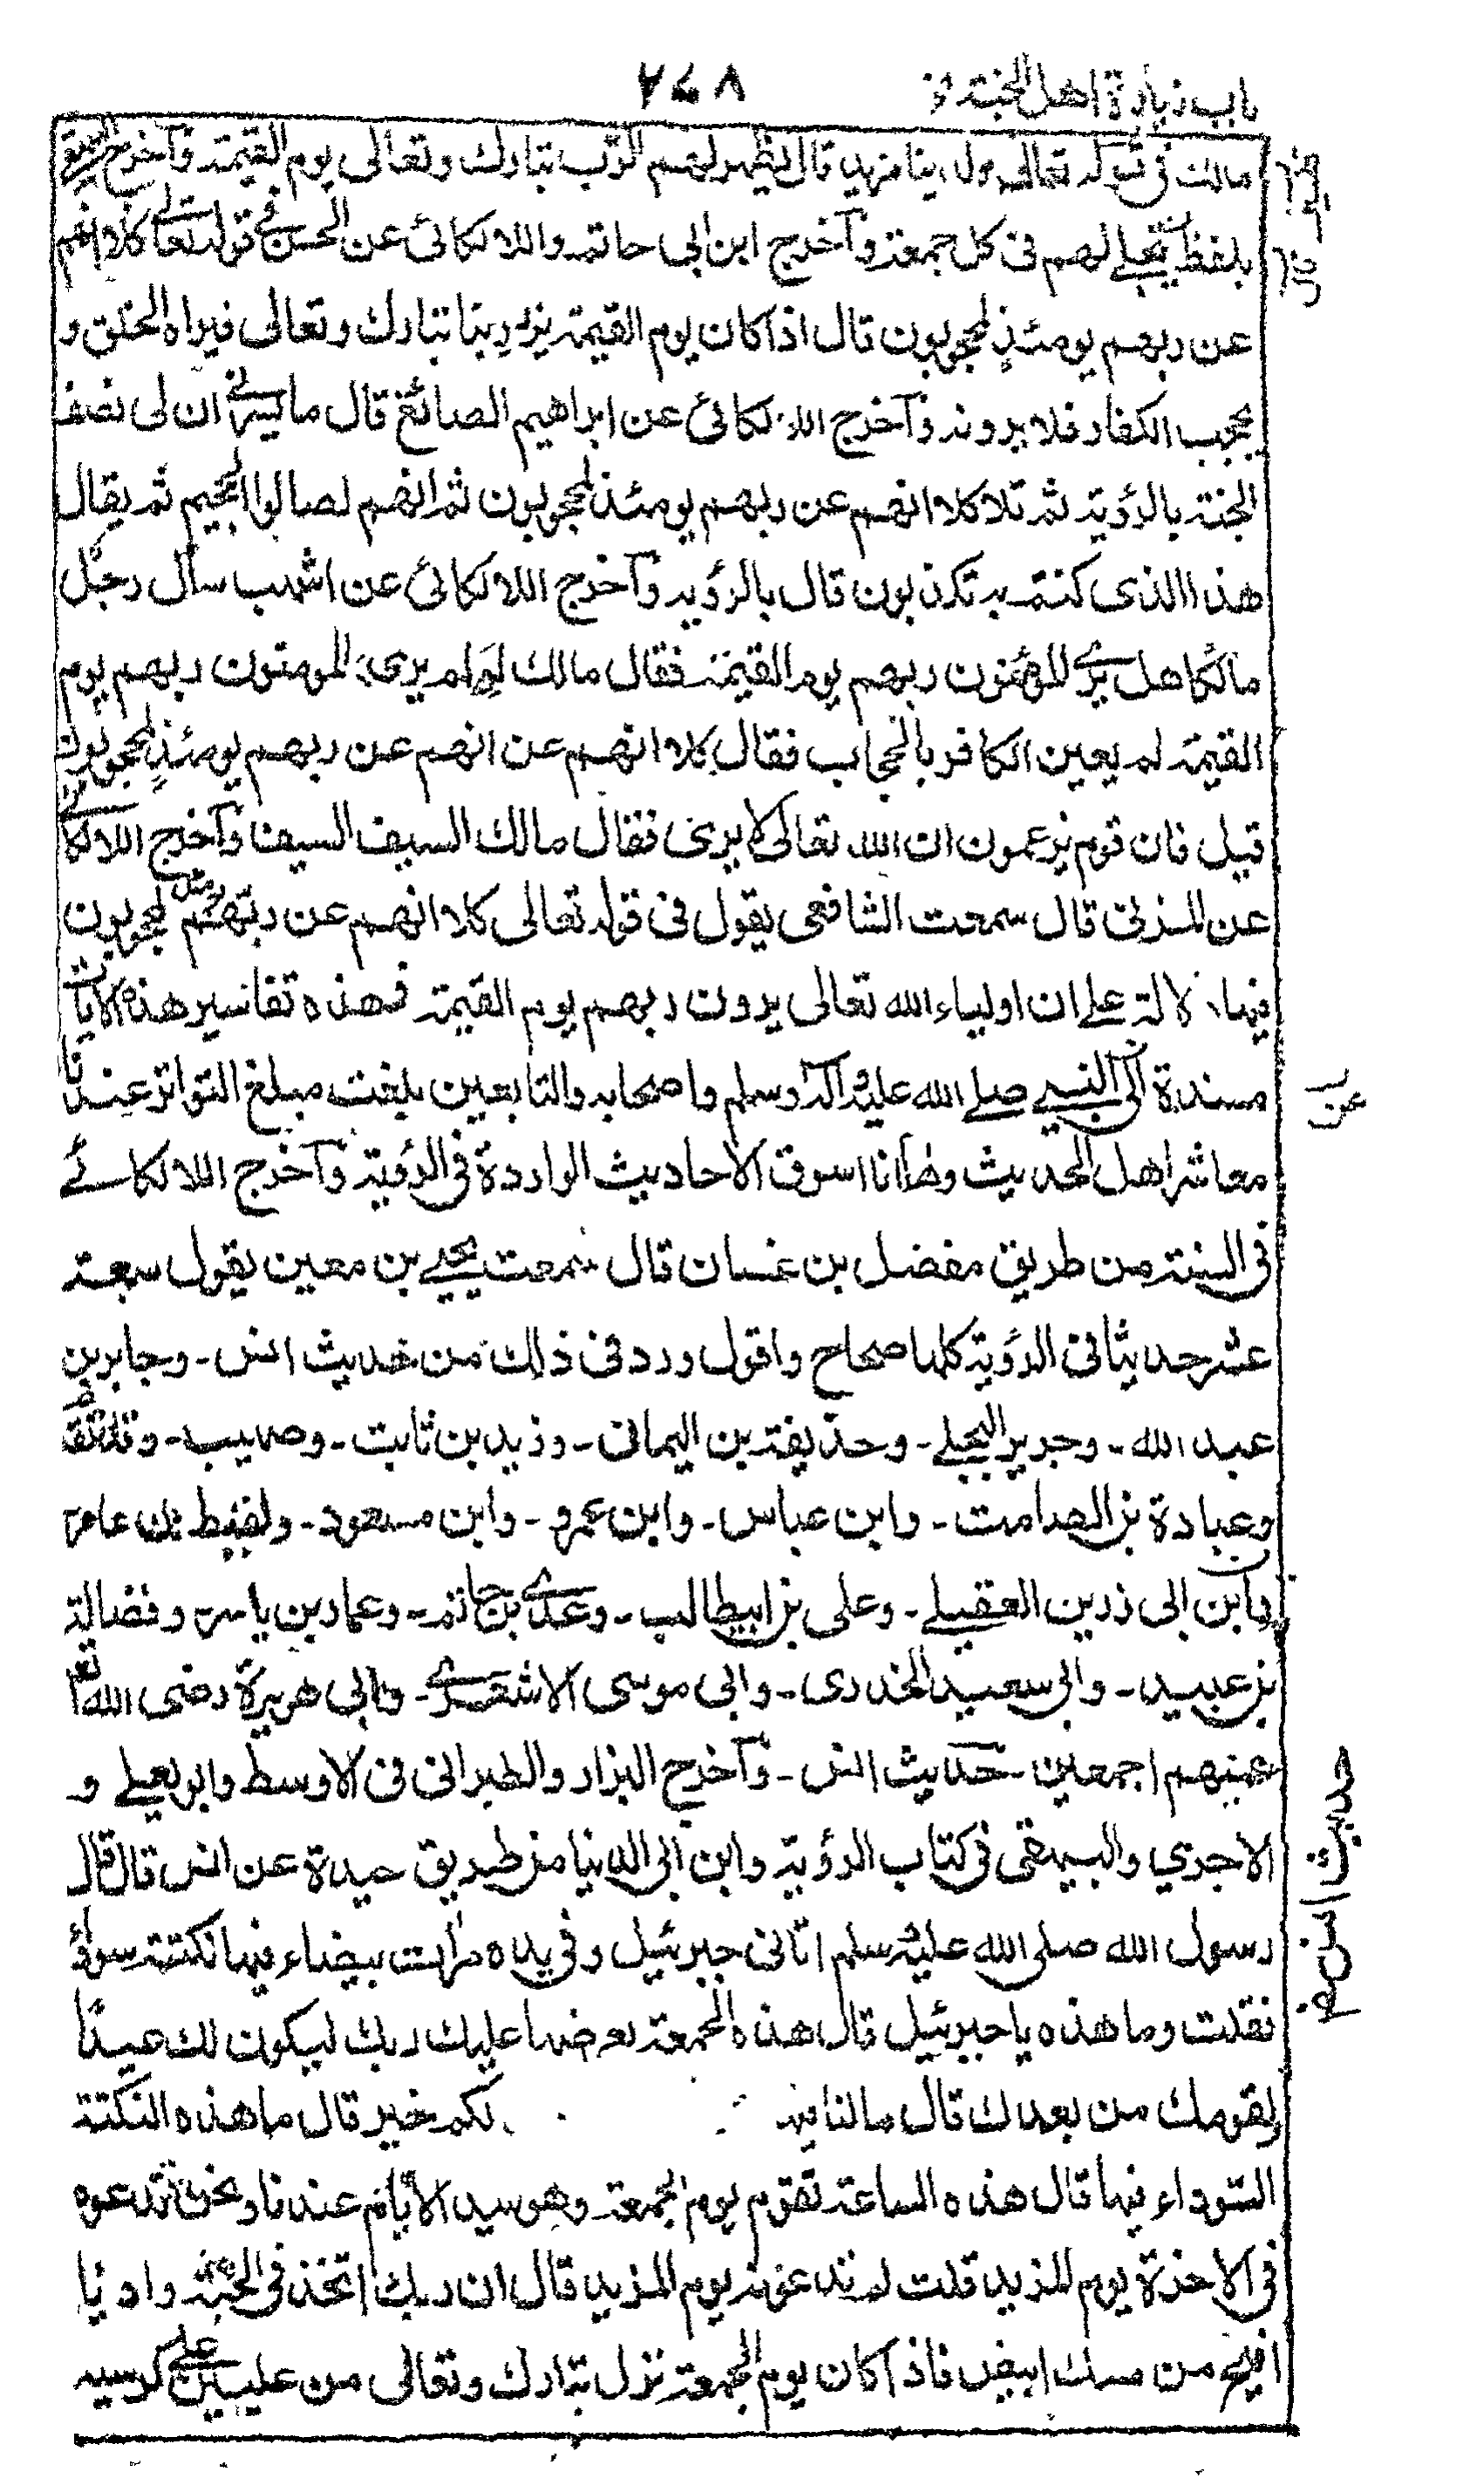 باب زيارة اهل الجنة
٢٧٨
مالك فى قوله تعالى ولدينا مزيد قال يظهر لهم الرب تبارك وتعالى يوم القيمة وآخرج البيهقى
بلفظ يتجلے لهم فى كل جمعة وآخرج ابن ابى حاتم واللالكائى عن الحسن فے قوله تعالے كلا انهم
عن ربهم يومئذٍ لمحجوبون قال اذا كان يوم القيمة يزيد ربنا تبارك وتعالى فيراه الخلق و
يحجب الكفار فلا يرونه وآخرج اللالكائى عن ابراهيم الصائغ قال ما يسرنے ان لى نصف
الجنة بالرؤية ثم تلا كلا انهم عن ربهم يومئذ لمحجوبون ثم انهم لصالوا الجحيم ثم يقال
هذا الذى كنتم به تكذبون قال بالرؤية وآخرج اللالكائى عن اشهب سأل رجل
مالكا هل يرے المؤمنون ربهم يوم القيمة فقال مالك لو لم يرى المومنون ربهم يوم
القيمة لم يعين الكافر بالحجاب فقال كلا انهم عن انهم عن ربهم يومئذٍ لمحجوبون
قيل فان قوم يزعمون ان الله تعالى لا يرى فقال مالك السيف السيف وآخرج اللالكائے
عن المزنى قال سمعت الشافعى يقول فى قوله تعالى كلا انهم عن ربهم يومئذ لمحجوبون
فيها دلالة على ان اولياء الله تعالى يرون ربهم يوم القيمة فهذه تفاسير هذه الايات
مسندة الى النبي صلے الله عليه وآله وسلم واصحابه والتابعين بلغت مبلغ التواتر عندنا
عن
معاشر اهل الحديث وها انا اسوق الاحاديث الواردة فى الرؤية وآخرج اللالكائے
فى السنة من طريق مفضل بن غسان قال سمعت يحيے بن معين يقول سبعة
عشر حديثا فى الرؤية كلها صحاح واقول ورد فى ذلك من حديث انس - وجابر بن
عبد الله - وجرير البجلے - وحذيفة بن اليمانى - وزيد بن ثابت - وصهيب -
وعبادة بن الصامت - وابن عباس - وابن عمرو - وابن مسعود - ولقيط بن عامر
وابن ابى رزين العقيلے - وعلى بن ابيطالب - وعدے بن حاتم - وعمار بن ياسر وفضالة
بن عبيد - وابى سعيد الخدرى - وابى موسى الاشعرے - وابى هريرة رضى الله تعا
عنهم اجمعين - حديث انس - وآخرج البزار والطبرانى فى الاوسط وابو يعلے و
حديث انس رضى
الاجري والبيهقى فى كتاب الرؤية وابن ابى الدنيا من طريق حيدة عن انس قال قال
رسول الله صلى الله عليه وسلم اتانى جبرئيل وفى يده مرات بيضاء فيها نكتة سوداء
فقلت وما هذه يا جبرئيل قال هذه الجمعة يعرضها عليك ربك ليكون لك عيدًا
لقومك من بعدك قال مالنا فيه لكم خير قال ما هذه النكتة
السوداء فيها قال هذه الساعة تقوم يوم الجمعة وهو سيد الايام عندنا ونحن ندعوه
فى الاخرة يوم المزيد قلت لم تدعونه يوم المزيد قال ان ربك اتخذ فى الجنة واديا
افيح من مسك ابيض فاذا كان يوم الجمعة نزل تبارك وتعالى من عليين على كرسيه